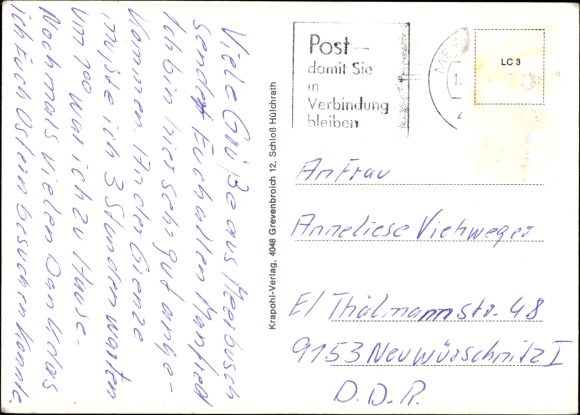 Viele Grüße aus Meerbusch
sendet Euch allen Manfred
Ich bin hier sehr gut ange-
kommen. An der Grenze
mußte ich 3 Stunden warten
um 7⁰⁰ war ich zu Hause.
Nochmals vielen Dank das
ich Euch Ostern besuchen konnte.
Krapohl-Verlag, 4048 Grevenbroich 12, Schloß Hülchrath
Post—
damit Sie
in
Verbindung
bleiben
LC 3
An Frau
Anneliese Viehweger
El Thälmannstr. 48
9153 Neuwürschnitz I
D.D.R.